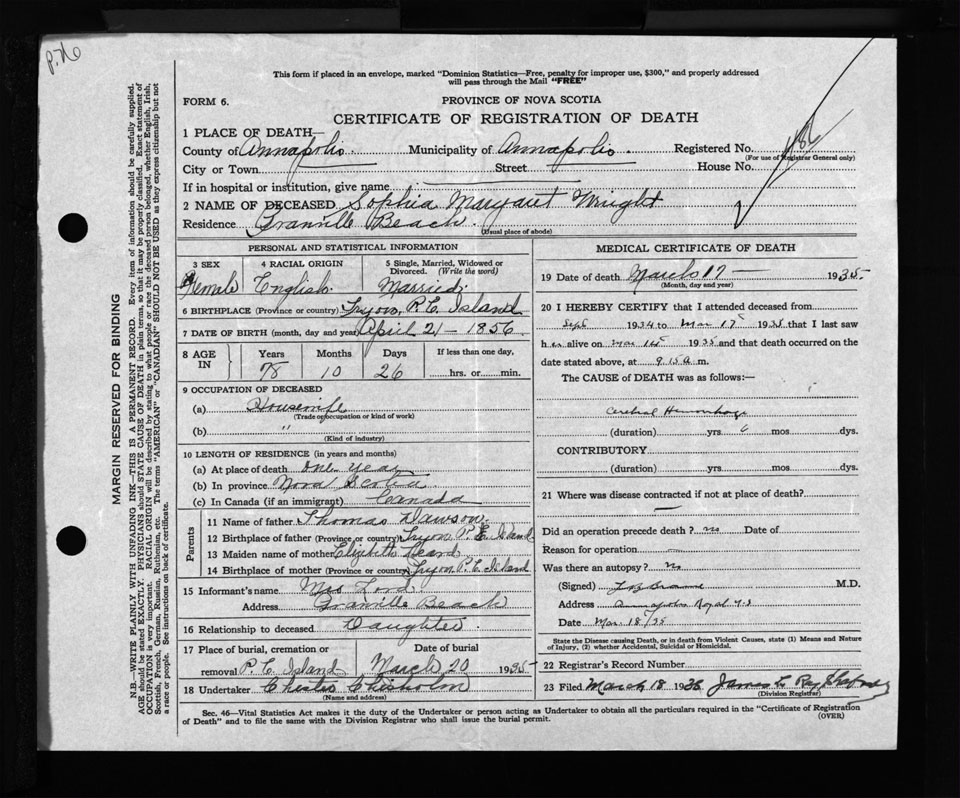 P.76
This form if placed in an envelope, marked "Dominion Statistics—Free, penalty for improper use, $300," and properly addressed
will pass through the Mail "FREE"
FORM 6.
PROVINCE OF NOVA SCOTIA
CERTIFICATE OF REGISTRATION OF DEATH
1 PLACE OF DEATH—
County of Annapolis Municipality of Annapolis. Registered No. 186
(For use of Registrar General only)
City or Town Street House No.
If in hospital or institution, give name
2 NAME OF DECEASED Sophia Margaret Wright
Residence Granville Beach.
(Usual place of abode)
PERSONAL AND STATISTICAL INFORMATION
3 SEX 4 RACIAL ORIGIN 5 Single, Married, Widowed or
Divorced. (Write the word)
Female English. Married.
6 BIRTHPLACE (Province or country) Tryon, P.E. Island
7 DATE OF BIRTH (month, day and year) April 21 - 1856
8 AGE IN Years Months Days If less than one day,
78 10 26 hrs. or min.
9 OCCUPATION OF DECEASED
(a) Housewife
(Trade or occupation or kind of work)
(b) "
(Kind of industry)
10 LENGTH OF RESIDENCE (in years and months)
(a) At place of death one year
(b) In province Nova Scotia
(c) In Canada (if an immigrant) Canada
Parents
11 Name of father Thomas Dawson.
12 Birthplace of father (Province or country) Tryon P.E. Island
13 Maiden name of mother Elizabeth Heard
14 Birthplace of mother (Province or country) Tryon P.E. Island
15 Informant's name Mrs Lord.
Address Granville Beach
16 Relationship to deceased Daughter.
17 Place of burial, cremation or
removal P.E. Island March 20 1935
18 Undertaker Chester Chisholm
(Name and address)
MEDICAL CERTIFICATE OF DEATH
19 Date of death March 17 — 1935
(Month, day and year)
20 I HEREBY CERTIFY that I attended deceased from
Sept 1934 to Mar 17 1935 that I last saw
her alive on Mar 1935 and that death occurred on the
date stated above, at 9.15 a. m.
The CAUSE of DEATH was as follows:—
Cerebral Hemorrhage
(duration) yrs 6 mos dys.
CONTRIBUTORY
(duration) yrs. mos. dys.
21 Where was disease contracted if not at place of death?
—
Did an operation precede death? no Date of
Reason for operation —
Was there an autopsy? no
(Signed) M.D.
Address Annapolis Royal N.S
Date Mar. 18/35
State the Disease causing Death, or in death from Violent Causes, state (1) Means and Nature
of Injury, (2) whether Accidental, Suicidal or Homicidal.
22 Registrar's Record Number
23 Filed March 18 1935 James L
(Division Registrar)
Sec. 46—Vital Statistics Act makes it the duty of the Undertaker or person acting as Undertaker to obtain all the particulars required in the "Certificate of Registration
of Death" and to file the same with the Division Registrar who shall issue the burial permit. (OVER)
MARGIN RESERVED FOR BINDING
N.B.—WRITE PLAINLY WITH UNFADING INK—THIS IS A PERMANENT RECORD. Every item of information should be carefully supplied.
AGE should be stated EXACTLY. PHYSICIANS should STATE CAUSE OF DEATH in plain terms, so that it may be properly classified. Exact statement of
OCCUPATION is very important. RACIAL ORIGIN will be described by stating to what people or race the deceased person belonged, whether English, Irish,
Scottish, French, German, Russian, Ruthenian, etc. The terms "AMERICAN" or "CANADIAN" SHOULD NOT BE USED as they express citizenship but not
a race or people. See instructions on back of certificate.